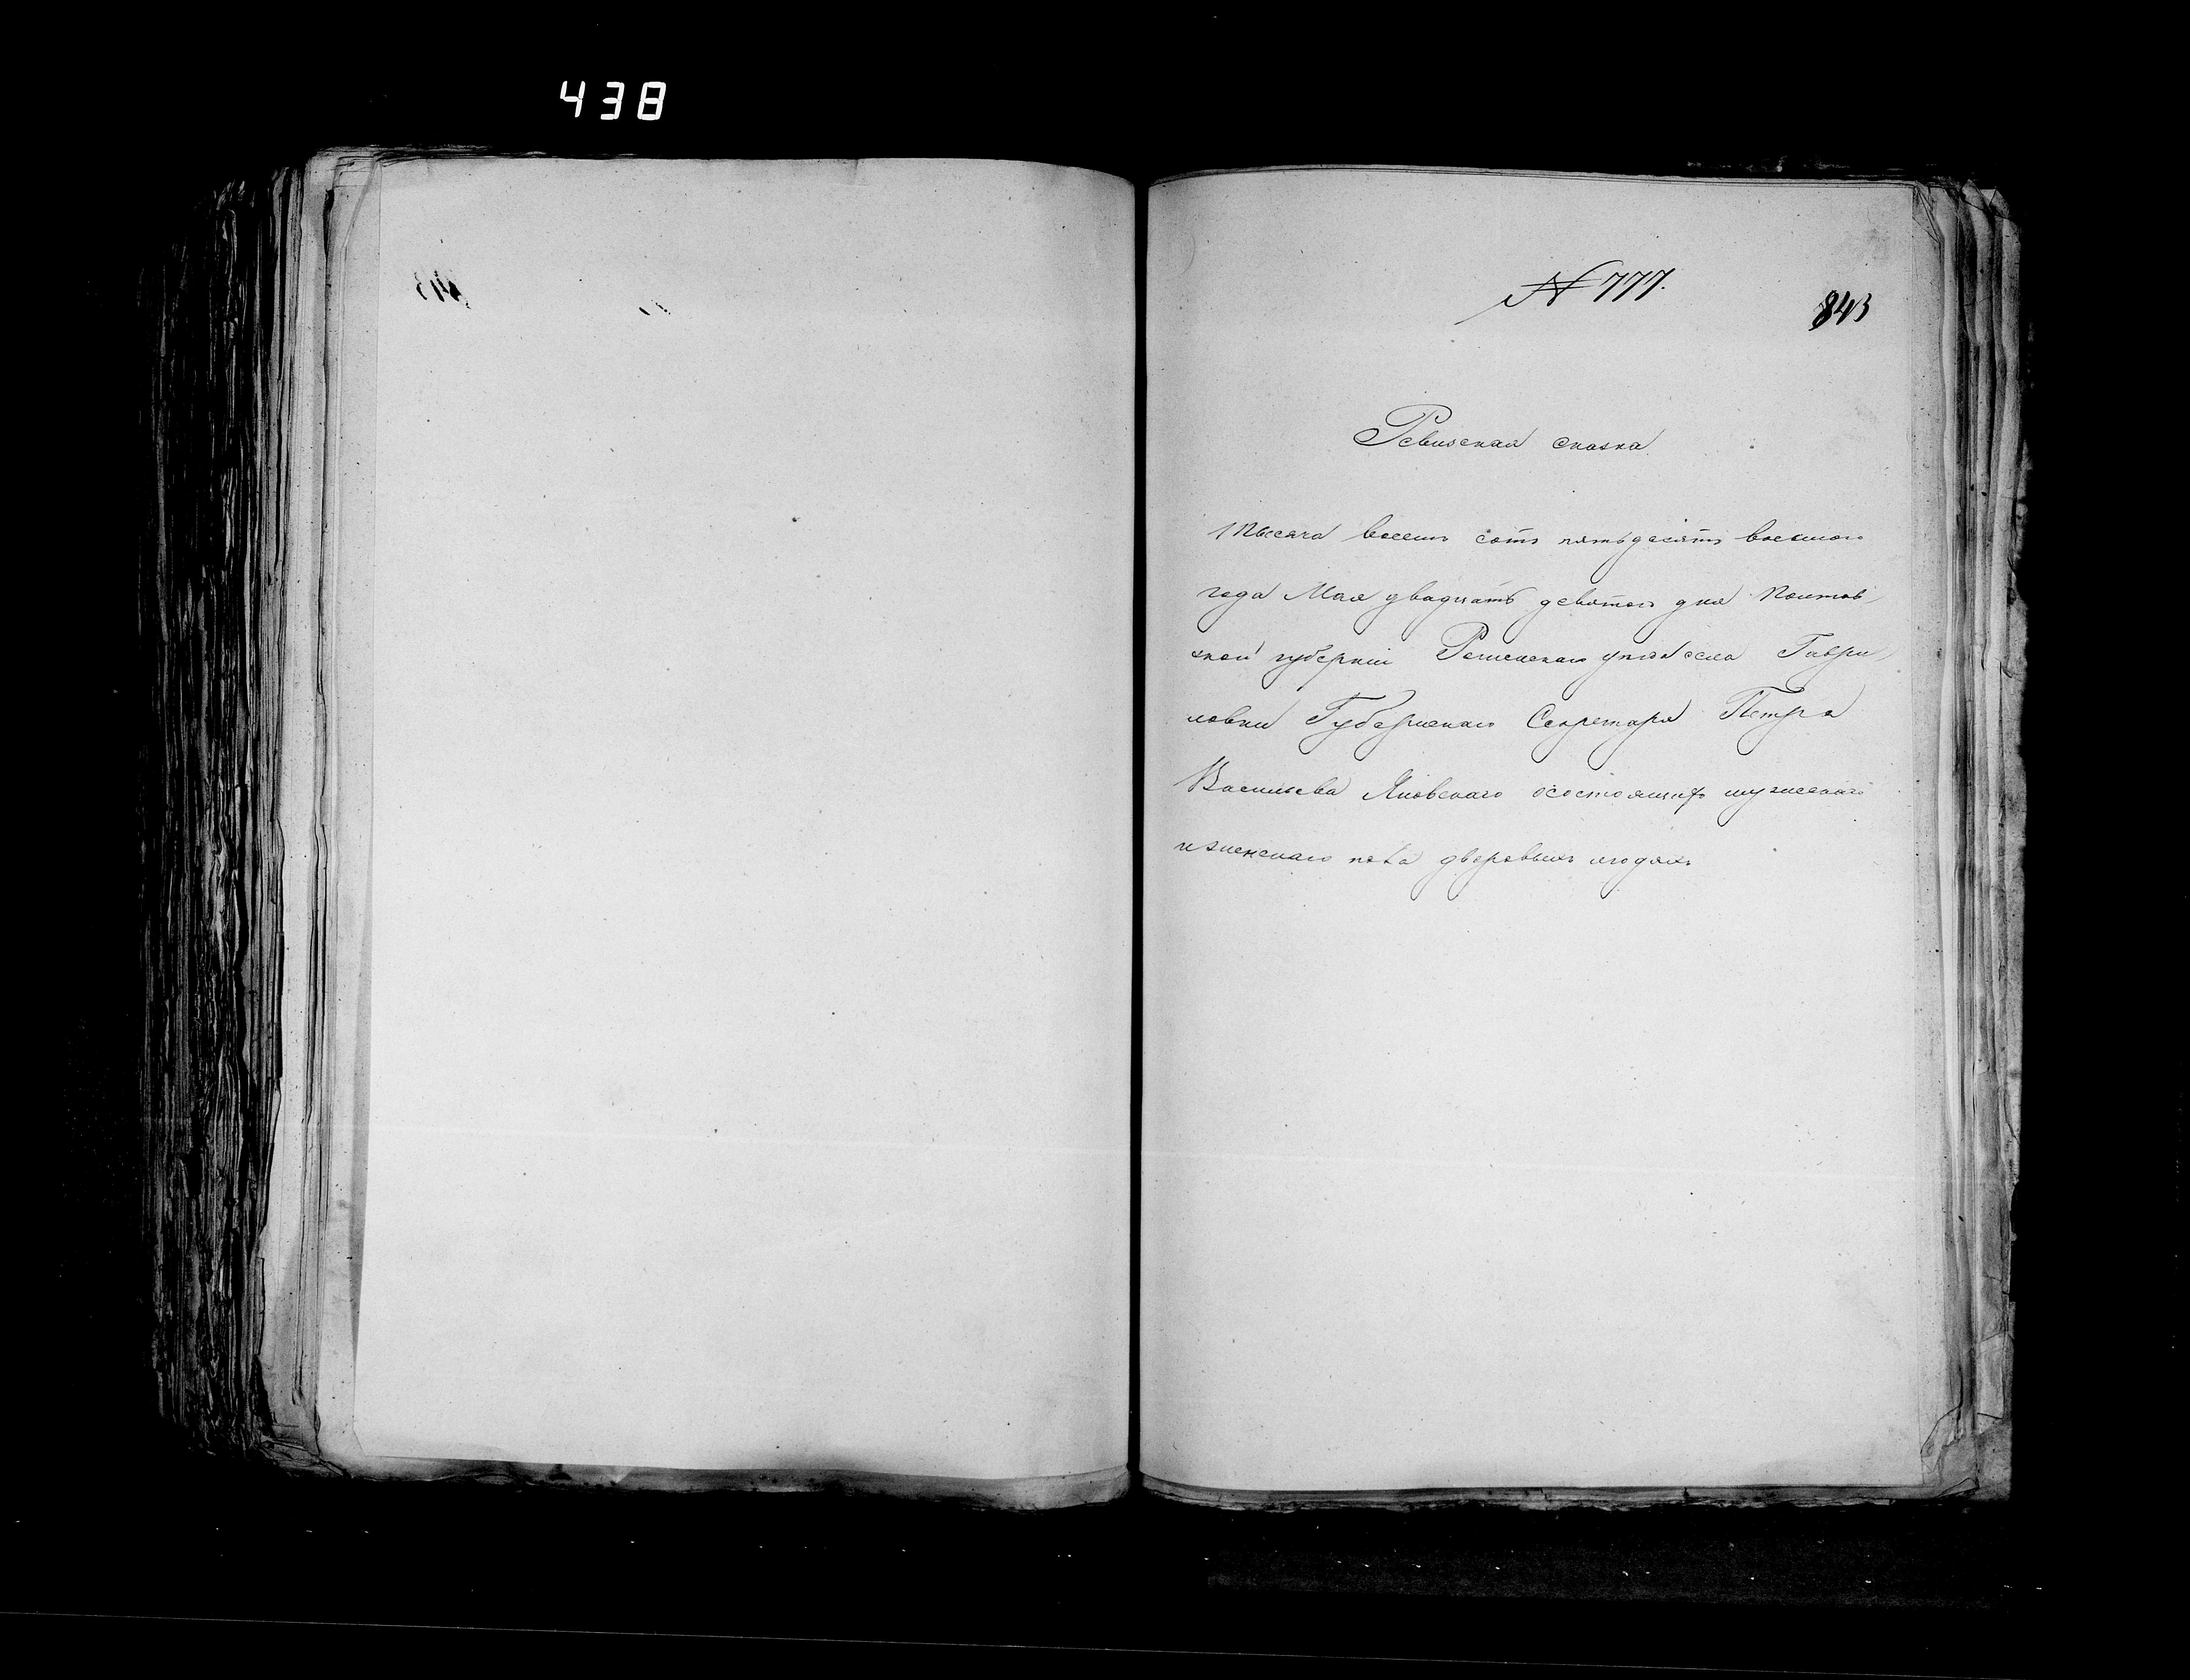 438
№ 777.
843
Ревизская сказка
Тысяча восемь сотъ пятьдесятъ восьмого
года Мая двадцать девятого дня Полтав-
ской губерніи Роменскаго уезда села Гаври-
ловки Губернскаго Секретаря Петра
Васильева Яновскаго осостоящихъ мужескаго
иженскаго пола дворовыхъ людяхъ